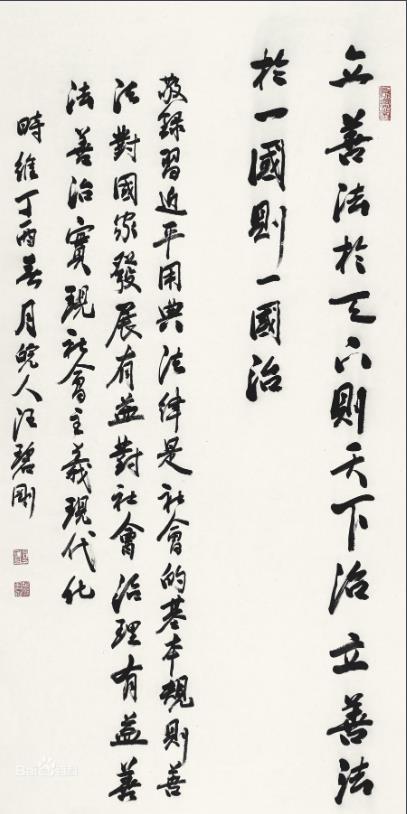 立善法於天下則天下治立善法
於一國則一國治
敬錄習近平用典法律是社會的基本規則善
法對國家發展有益對社會治理有益善
法善治實現社會主義現代化
時維丁酉春月皖人汪碧剛
Baidu百科